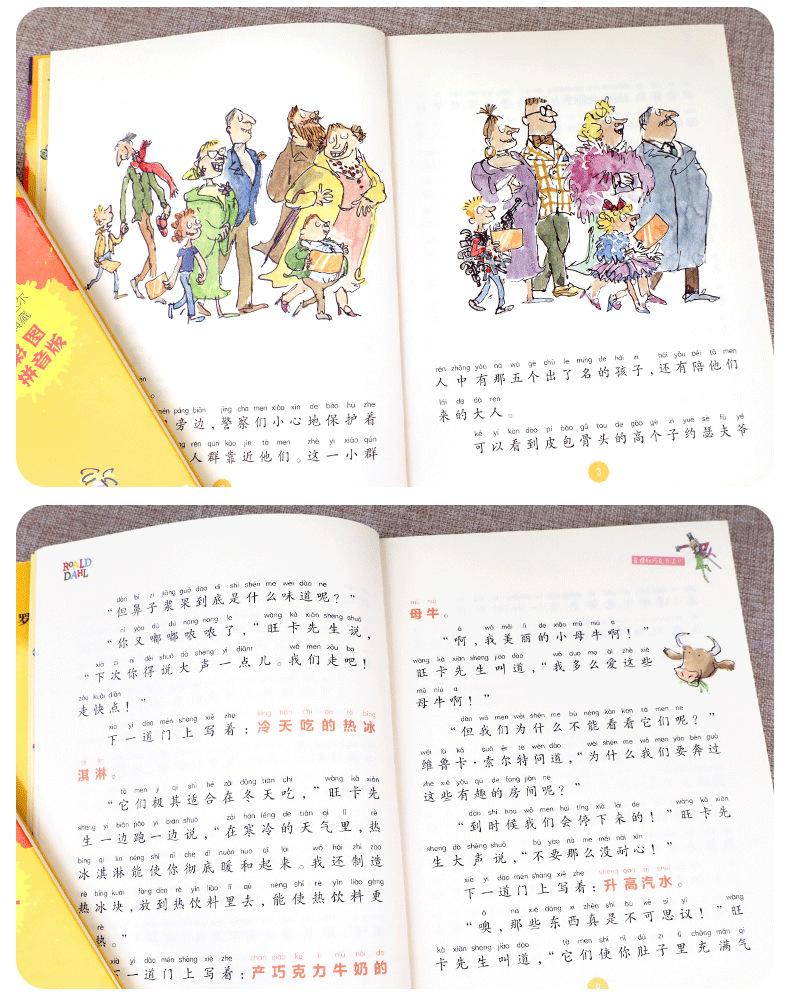 彩图
拼音版
mén páng biān jǐng chá men xiǎo xīn de bǎo hù zhe
旁边，警察们小心地保护着
rén qún kào jìn tā men zhè yì xiǎo qún
人群靠近他们。这一小群
rén zhōng yǒu nà wǔ gè chū le míng de hái zi hái yǒu péi tā men
人中有那五个出了名的孩子，还有陪他们
lái de dà rén
来的大人。
kě yǐ kàn dào pí bāo gǔ tou de gāo gè zi yuē sè fū yé
可以看到皮包骨头的高个子约瑟夫爷
3
ROALD
DAHL
dàn bí zi jiāng guǒ dào dǐ shì shén me wèi dào ne
“但鼻子浆果到底是什么味道呢？”
nǐ yòu dū dū nóng nong le wàng kǎ xiān sheng shuō
“你又嘟嘟哝哝了，”旺卡先生说，
xià cì nǐ děi shuō dà shēng yì diǎnr wǒ men zǒu ba
“下次你得说大声一点儿。我们走吧！
zǒu kuài diǎn
走快点！”
xià yí dào mén shang xiě zhe lěng tiān chī de rè bīng
下一道门上写着：冷天吃的热冰
qí lín
淇淋。
tā men jí qí shì hé zài dōng tiān chī wàng kǎ xiān
“它们极其适合在冬天吃，”旺卡先
sheng yì biān pǎo yì biān shuō zài hán lěng de tiān qì lǐ rè
生一边跑一边说，“在寒冷的天气里，热
bīng qí lín néng shǐ nǐ chè dǐ nuǎn huo qǐ lái wǒ hái zhì zào
冰淇淋能使你彻底暖和起来。我还制造
rè bīng kuài fàng dào rè yǐn liào lǐ qù néng shǐ rè yǐn liào gèng
热冰块，放到热饮料里去，能使热饮料更
热。”
xià yí dào mén shang xiě zhe chǎn qiǎo kè lì niú nǎi de
下一道门上写着：产巧克力牛奶的
mǔ niú
母牛。
ā wǒ měi lì de xiǎo mǔ niú a
“啊，我美丽的小母牛啊！”
wàng kǎ xiān sheng jiào dào wǒ duō me ài zhè xiē
旺卡先生叫道，“我多么爱这些
mǔ niú a
母牛啊！”
dàn wǒ men wèi shén me bù néng kàn kan tā men ne
“但我们为什么不能看看它们呢？”
wéi lǔ kǎ suǒ ěr tè wèn dào wèi shén me wǒ men yào bēn guò
维鲁卡·索尔特问道，“为什么我们要奔过
zhè xiē yǒu qù de fáng jiān ne
这些有趣的房间呢？”
dào shí hou wǒ men huì tíng xià lái de wàng kǎ xiān
“到时候我们会停下来的！”旺卡先
sheng dà shēng shuō bú yào nà me méi nài xīn
生大声说，“不要那么没耐心！”
xià yí dào mén shang xiě zhe shēng gāo qì shuǐ
下一道门上写着：升高汽水。
ō nà xiē dōng xi zhēn shì bù kě sī yì wàng
“噢，那些东西真是不可思议！”旺
kǎ xiān sheng jiào dào tā men shǐ nǐ dù zi lǐ chōng mǎn qì
卡先生叫道，“它们使你肚子里充满气